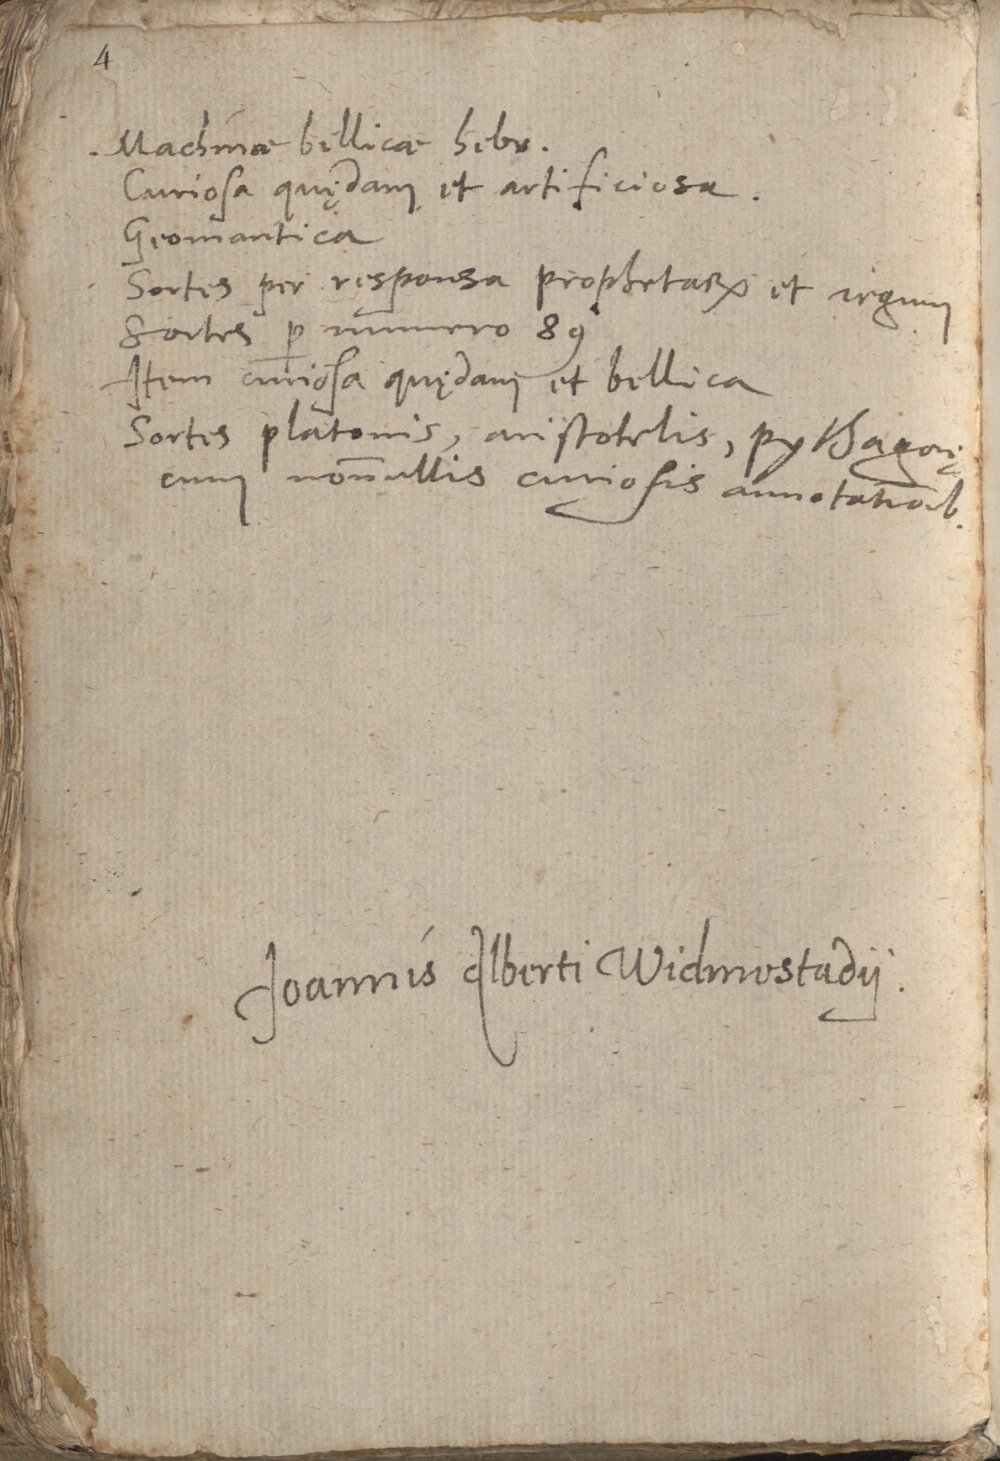 4
Machinæ bellicæ hebr.
Curiosa quędam et artificiosa.
Geomantica
Sortes per responsa prophetaꝝ et regum
Sortes ꝑ numero 89
Item curiosa quędam et bellica
Sortes platonis, aristotelis, pythagorę
cum non̄ullis curiosis annotatio̅ib.
Joannis Alberti Widmestadij.